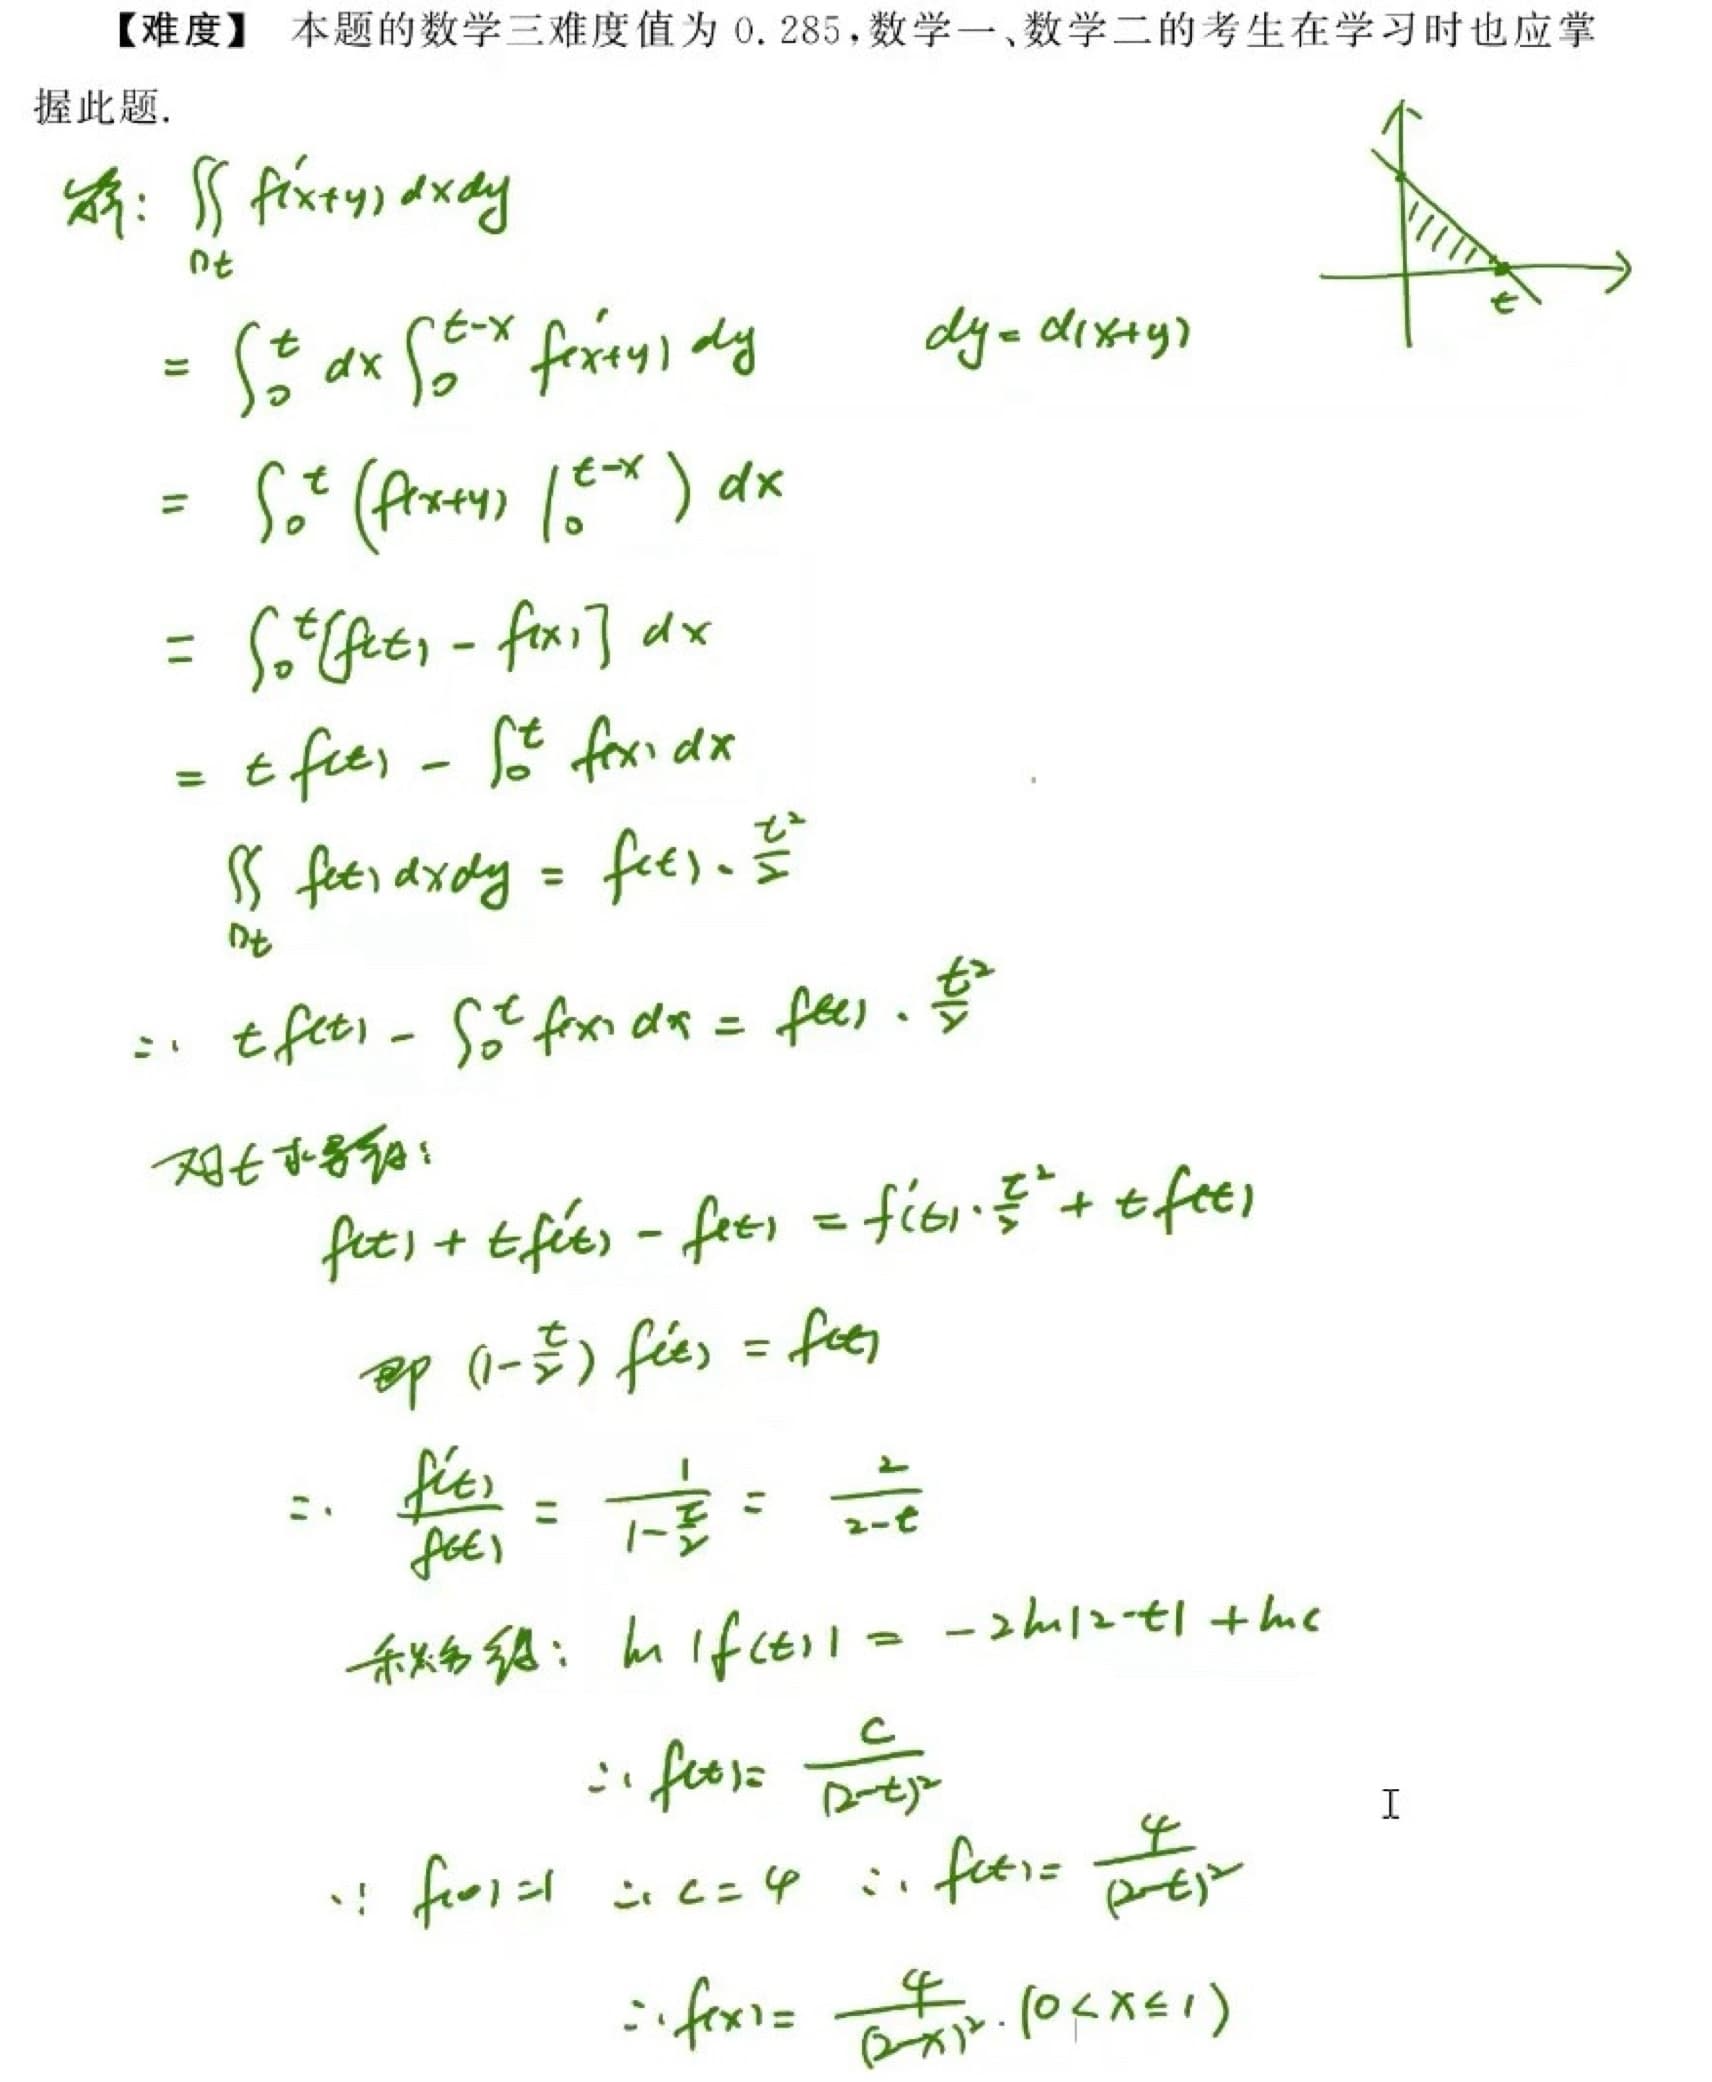 【难度】 本题的数学三难度值为 0.285,数学一、数学二的考生在学习时也应掌
握此题.
解: ∬_{D_t} f'(x+y) dxdy
= ∫_0^t dx ∫_0^{t-x} f'(x+y) dy    dy = d(x+y)
t
= ∫_0^t (f(x+y) |_0^{t-x}) dx
= ∫_0^t [f(t) - f(x)] dx
= t f(t) - ∫_0^t f(x) dx
∬_{D_t} f(t) dxdy = f(t) · t²/2
∴ t f(t) - ∫_0^t f(x) dx = f(t) · t²/2
对t求导得:
f(t) + t f'(t) - f(t) = f'(t) · t²/2 + t f(t)
即 (1 - t/2) f'(t) = f(t)
∴ f'(t)/f(t) = 1/(1 - t/2) = 2/(2-t)
积分得: ln|f(t)| = -2ln|2-t| + lnc
∴ f(t) = c/(2-t)²
∵ f(0) = 1 ∴ c = 4 ∴ f(t) = 4/(2-t)²
∴ f(x) = 4/(2-x)² . (0 < x ≤ 1)